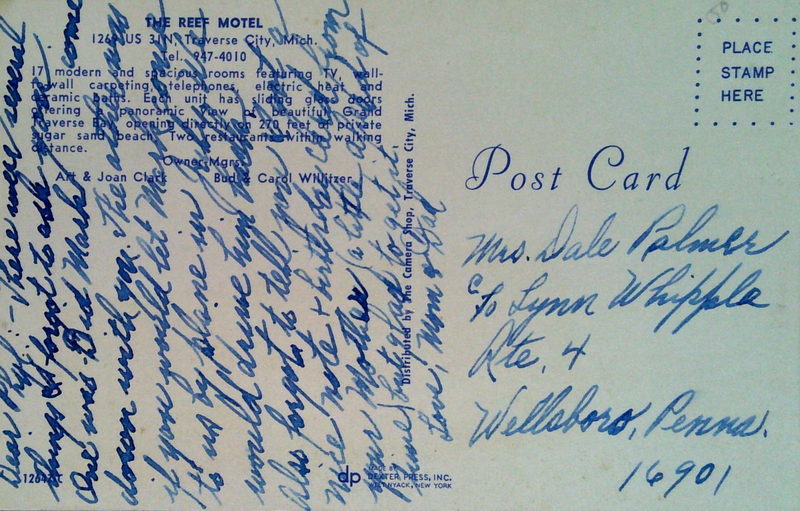 THE REEF MOTEL
1269 US 31N, Traverse City, Mich.
Tel. 947-4010
17 modern and spacious rooms featuring TV, wall-
to-wall carpeting, telephones, electric heat and
ceramic baths. Each unit has sliding glass doors
offering a panoramic view of beautiful Grand
Traverse Bay, opening directly on 270 feet of private
sugar sand beach. Two restaurants within walking
distance.
Owner-Mgrs.
Art & Joan Clark Bud & Carol Willitzer
12642C
Dear Phyl - There were several
things I forgot to ask you
One was Did Mark come
down with The other was
if you would let Mark come
to us by plane in
would drive him home
Also forgot to tell you I got a
nice note & birthday card from
your Mother (a little ahead of
time) but glad to get it.
Love, Mom & Dad
Distributed by The Camera Shop, Traverse City, Mich.
dp MADE BY
DEXTER PRESS, INC.
WEST NYACK, NEW YORK
PLACE
STAMP
HERE
Post Card
Mrs. Dale Palmer
c/o Lynn Whipple
Rte. 4
Wellsboro, Penna.
16901